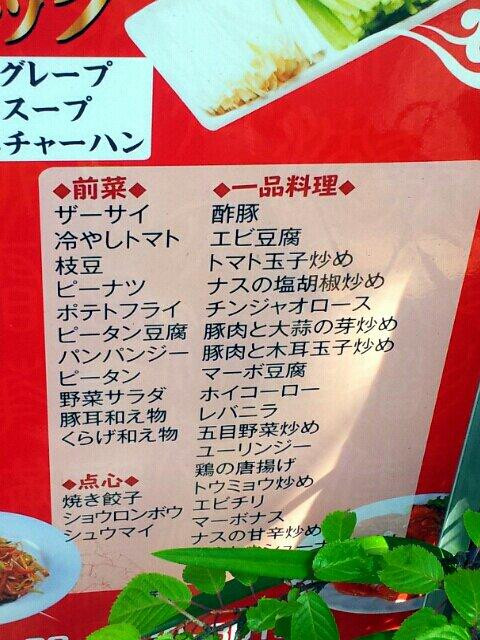 グレープ
スープ
チャーハン
◆前菜◆
ザーサイ
冷やしトマト
枝豆
ピーナツ
ポテトフライ
ピータン豆腐
バンバンジー
ピータン
野菜サラダ
豚耳和え物
くらげ和え物
◆点心◆
焼き餃子
ショウロンポウ
シュウマイ
◆一品料理◆
酢豚
エビ豆腐
トマト玉子炒め
ナスの塩胡椒炒め
チンジャオロース
豚肉と大蒜の芽炒め
豚肉と木耳玉子炒め
マーボ豆腐
ホイコーロー
レバニラ
五目野菜炒め
ユーリンジー
鶏の唐揚げ
トウミョウ炒め
エビチリ
マーボナス
ナスの甘辛炒め